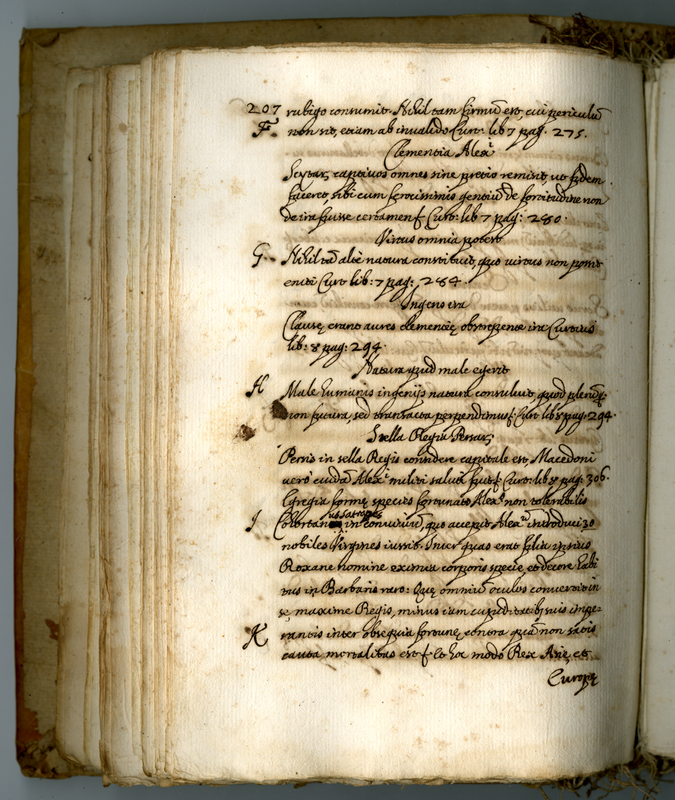 207 rubigo consumit. Nihil tam firmũ est, cui periculũ
F. non sit, etiam ab invalido Curt. lib 7 pag. 275.
Clementia Alexi
Scytar, captivos omnes sine pretio remisit, ut fidem
faceret, sibi cum ferocissimis gentiũ de fortitudine non
de ira fuisse certamen Curt: lib 7 pag: 280.
Virtus omnia potest
G. Nihil tã altè natura constituit, quo virtus non possit
eniti Curt lib: 7 pag: 284
Ingens ira
Clausę erant aures clementię obstrepente ira Curtius
lib: 8 pag: 294.
Natura quid male egerit
H Male humanis ingenijs natura consuluit, quod plerũq
non futura, sed transacta perpendimus Curt lib 8 pag: 294.
Sella Regia Persar
Persis in sella Regis considere capitale est, Macedoni
verò cuidã Alexi militi saluti fuit Curt: lib: 8 pag: 306.
Egregia formę species fortunato Alexo non tolerabilis
us Satrapes
I Cohortan in convivium, quo accepit Alexũ introduci 30
nobiles Virgines iussit. Inter quas erat filia ipsius
Roxane nomine eximia corporis specie, et decore habi
tus in Barbaris raro: Quę omniũ oculos convertit in
sę maxime Regis, minus iam cupiditatibq suis impe-
K rantis inter obsequia fortunę, contra quã non satis
cauta mortalitas est Et hoc modo Rex Asię et
Europę